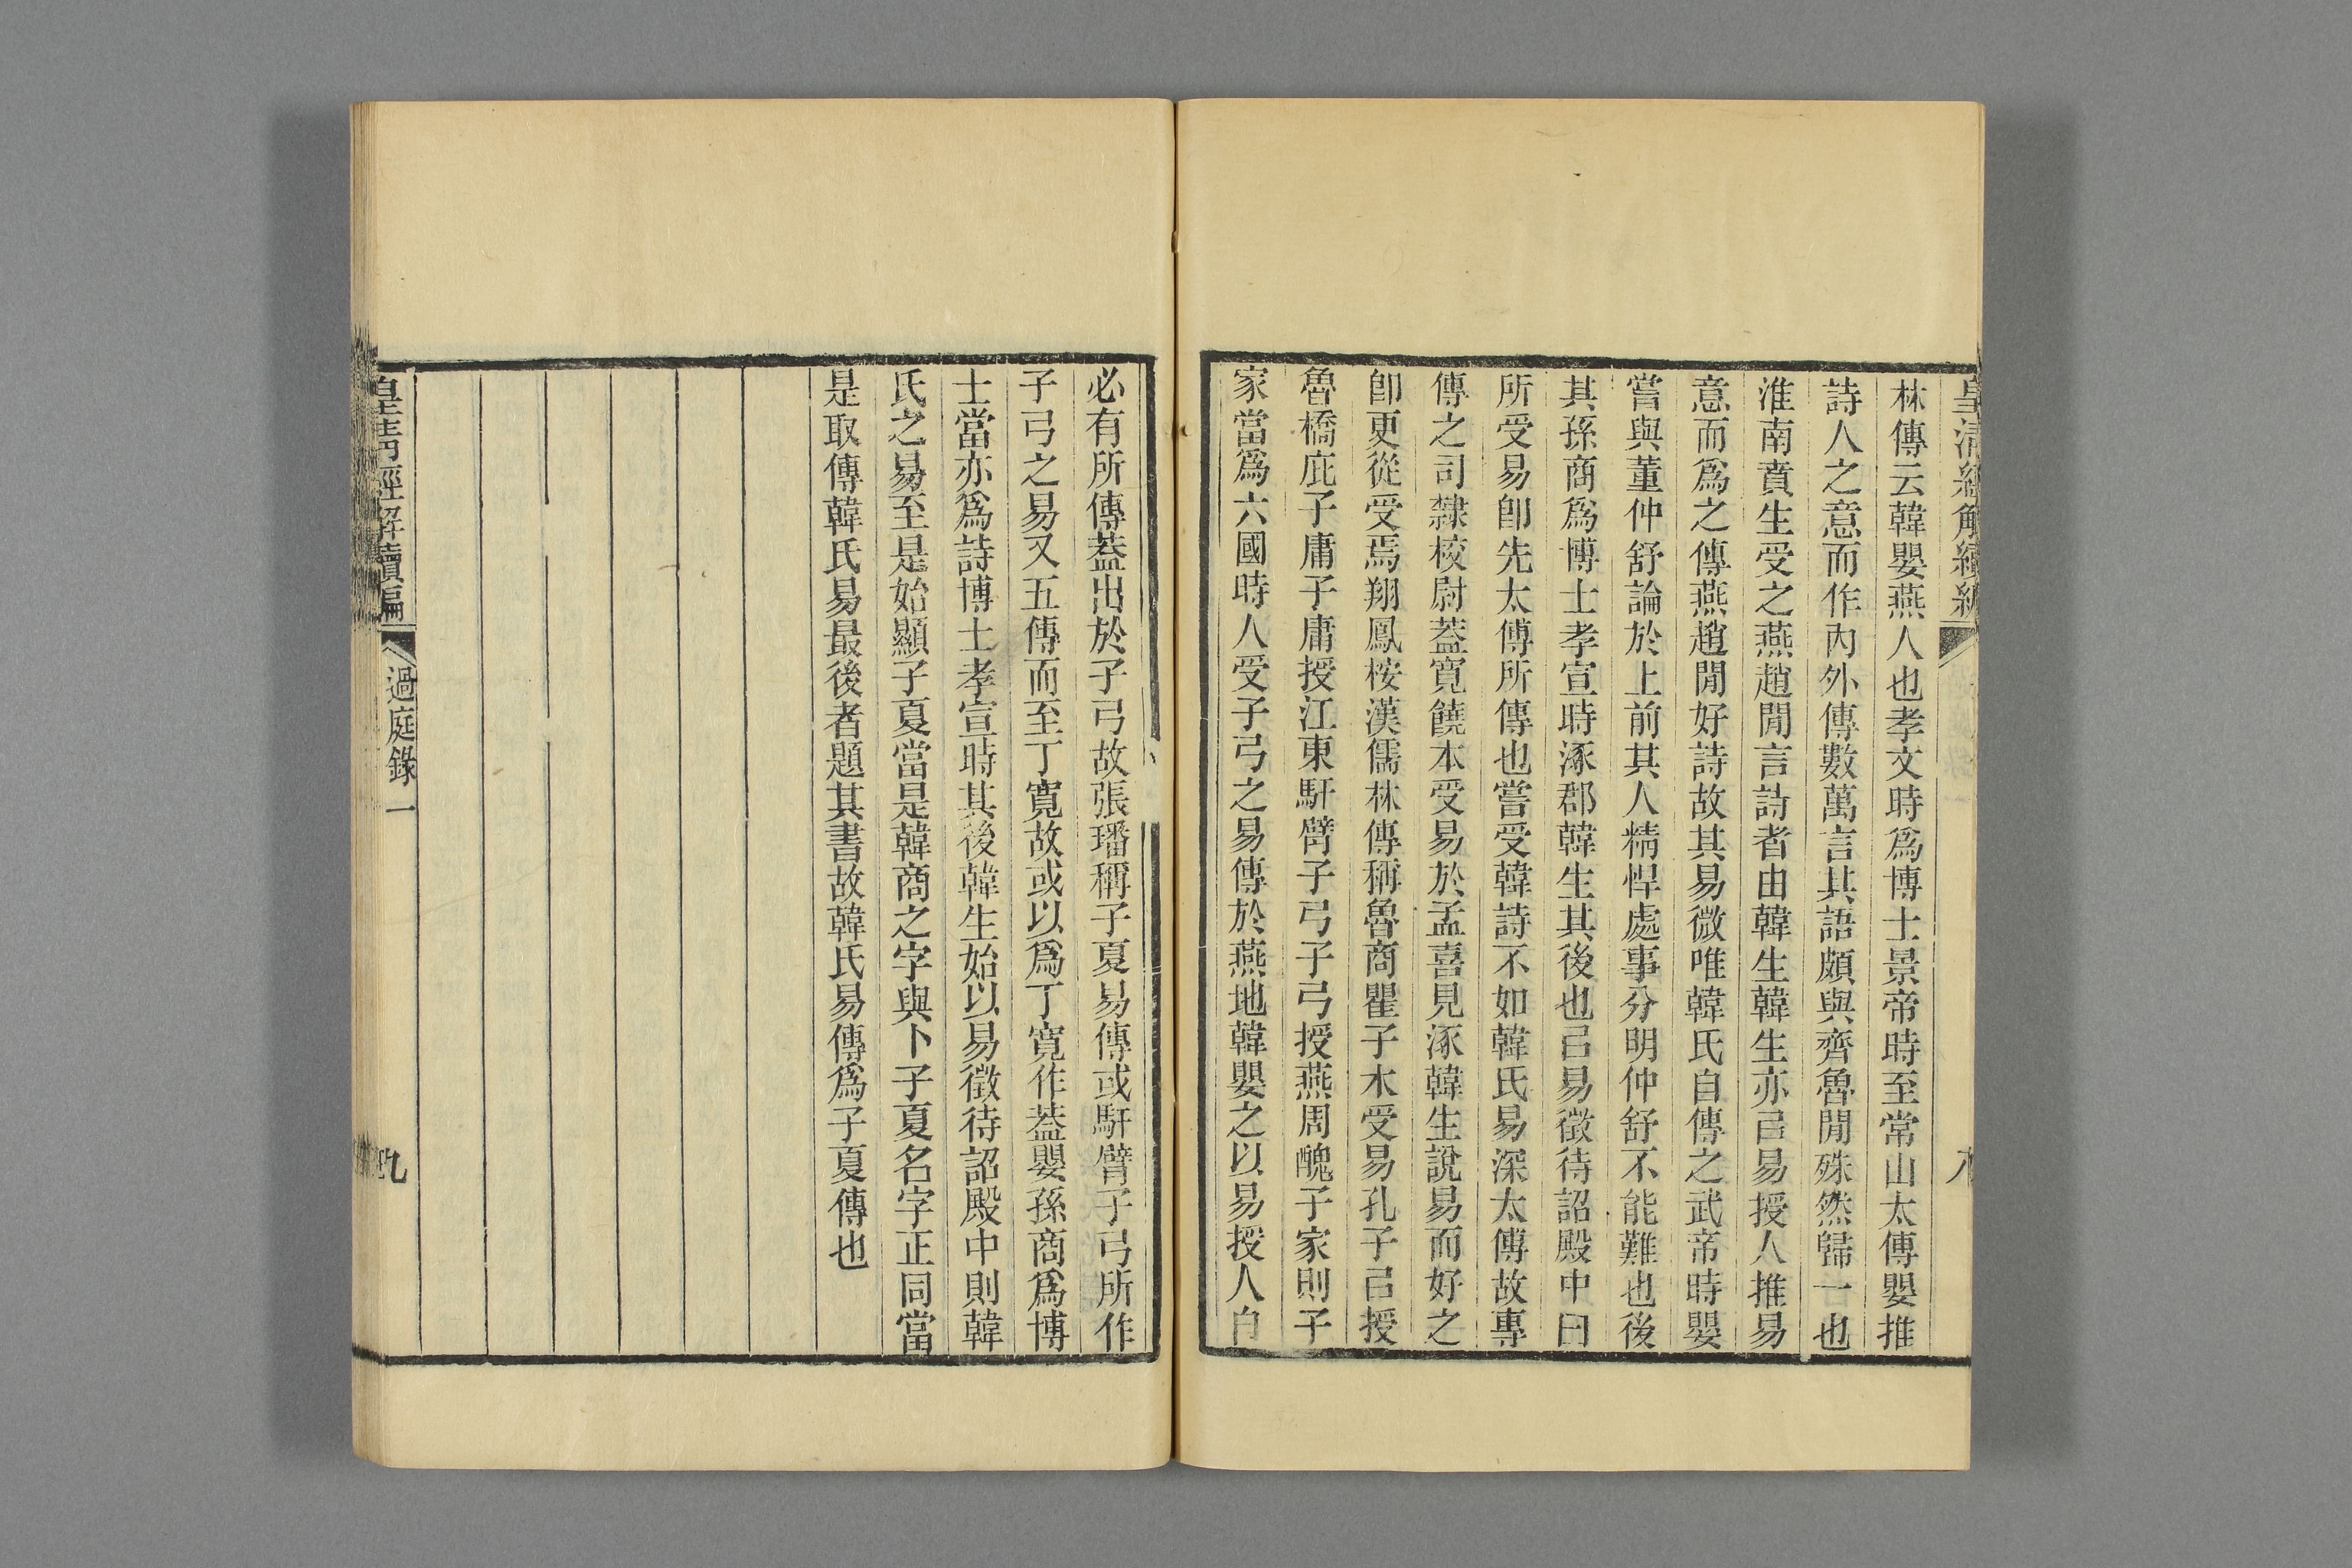 皇清經解續編
八
林傳云韓嬰燕人也孝文時爲博士景帝時至常山太傅嬰推
詩人之意而作內外傳數萬言其語頗與齊魯閒殊然歸一也
淮南賁生受之燕趙閒言詩者由韓生韓生亦㠯易授人推易
意而爲之傳燕趙閒好詩故其易微唯韓氏自傳之武帝時嬰
嘗與董仲舒論於上前其人精悍處事分明仲舒不能難也後
其孫商爲博士孝宣時涿郡韓生其後也㠯易徵待詔殿中曰
所受易卽先太傅所傳也嘗受韓詩不如韓氏易深太傅故專
傳之司隸校尉蓋寬饒本受易於孟喜見涿韓生說易而好之
卽更從受焉翔鳳桉漢儒林傳稱魯商瞿子木受易孔子㠯授
魯橋庇子庸子庸授江東馯臂子弓子弓授燕周醜子家則子
家當爲六國時人受子弓之易傳於燕地韓嬰之以易授人自
必有所傳蓋出於子弓故張璠稱子夏易傳或馯臂子弓所作
子弓之易又五傳而至丁寬故或以爲丁寬作蓋嬰孫商爲博
士當亦爲詩博士孝宣時其後韓生始以易徵待詔殿中則韓
氏之易至是始顯子夏當是韓商之字與卜子夏名字正同當
是取傳韓氏易最後者題其書故韓氏易傳爲子夏傳也
皇清經解續編
過庭錄一
九